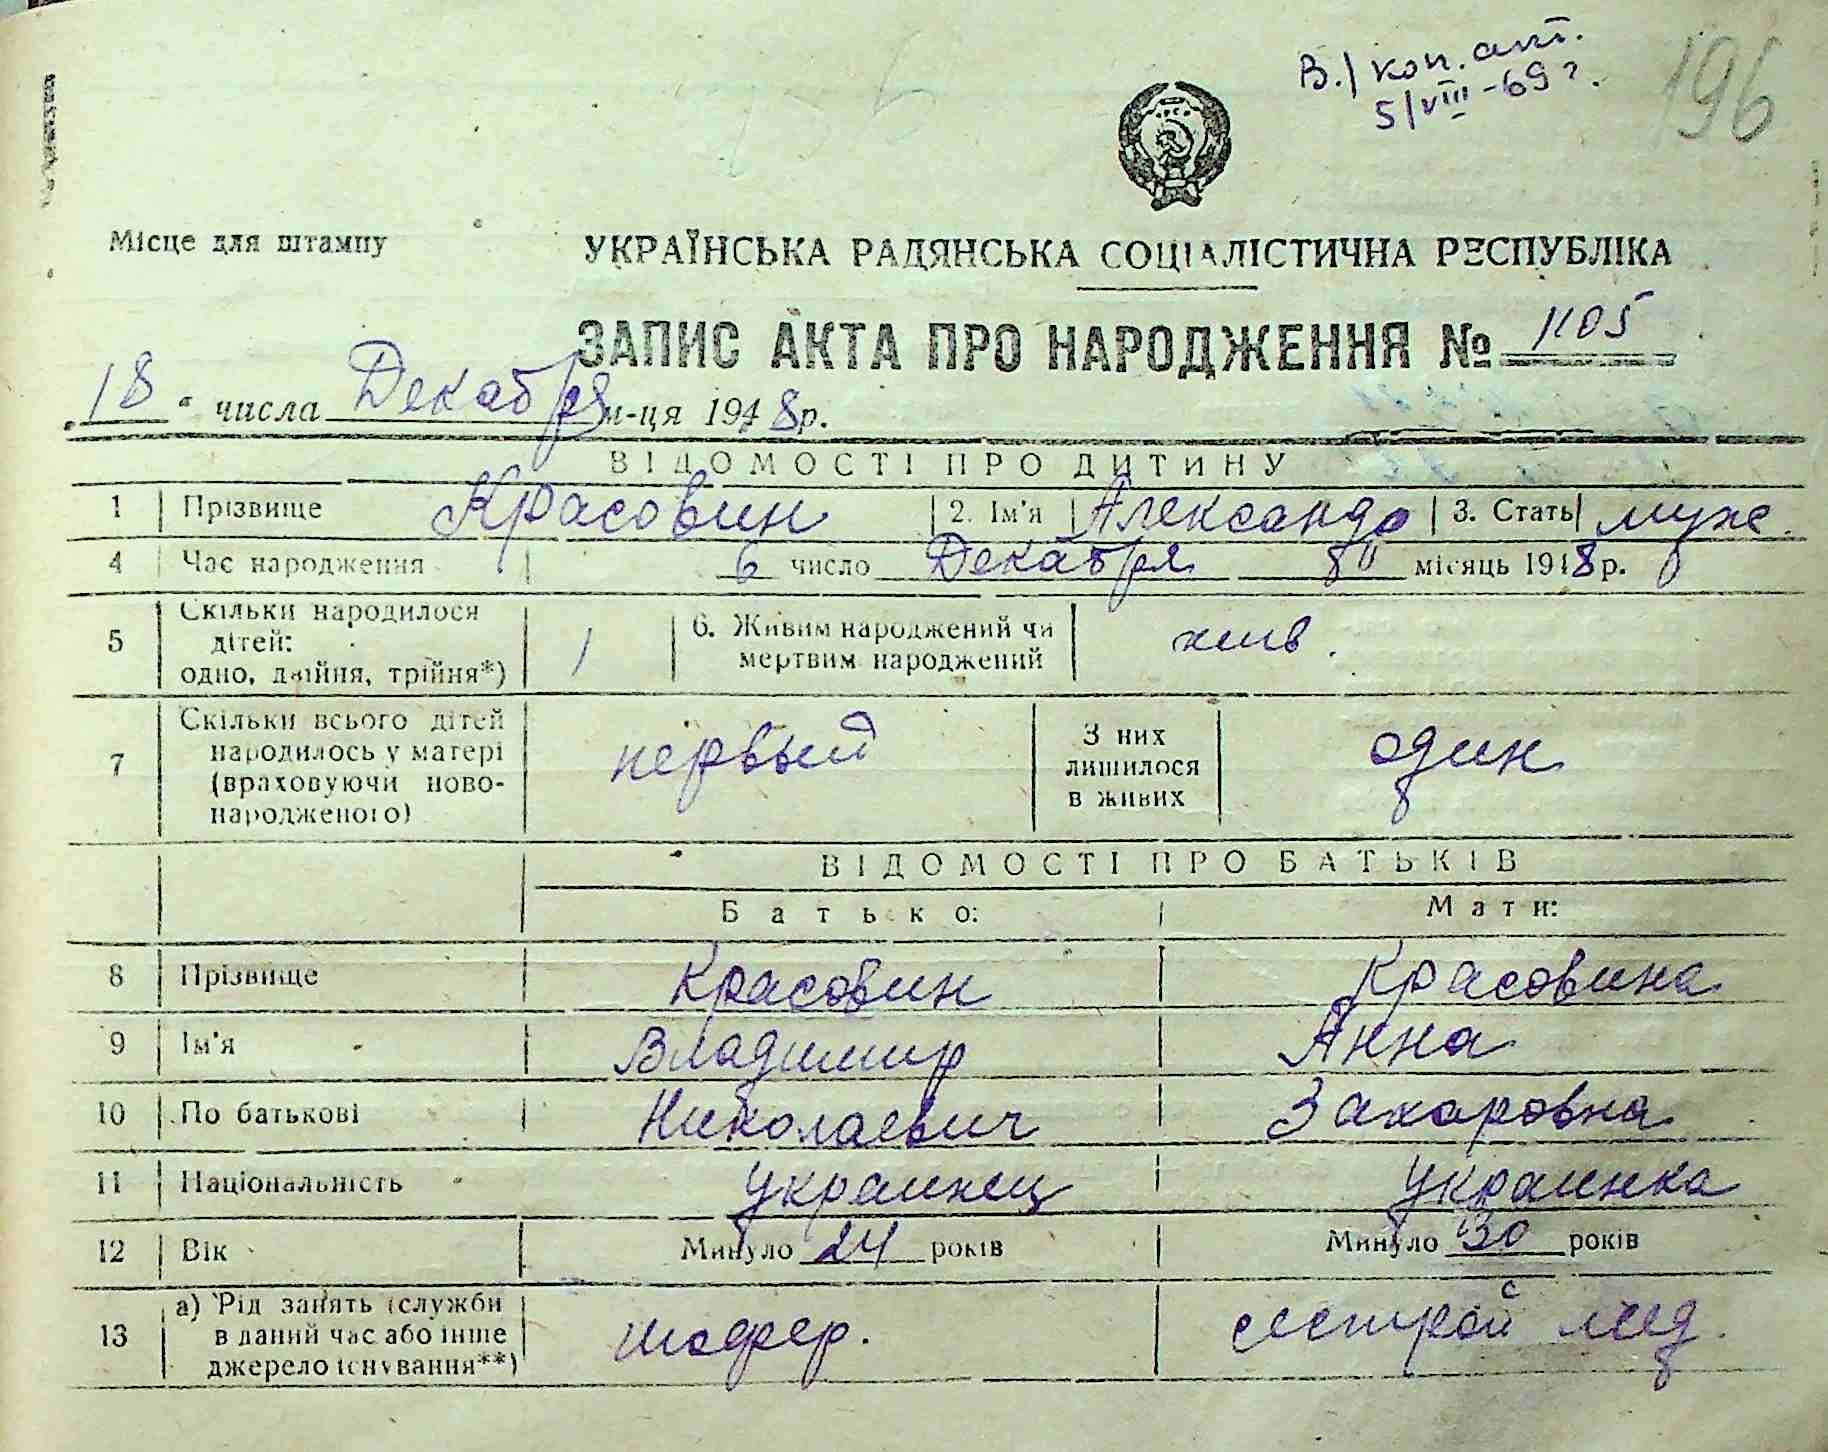 В./ коп. апт.
5/VIII-69 г.
196
Місце для штампу
УКРАЇНСЬКА РАДЯНСЬКА СОЦІАЛІСТИЧНА РЕСПУБЛІКА
ЗАПИС АКТА ПРО НАРОДЖЕННЯ № 1105
„18“ числа Декабря м-ця 1948 р.
ВІДОМОСТІ ПРО ДИТИНУ
1 Прізвище Красовин 2. Ім'я Александр 3. Стать муж.
4 Час народження 6 число Декабря місяць 1948 р.
5 Скільки народилося дітей: одно, двійня, трійня*) 1 6. Живим народжений чи мертвим народжений жив.
7 Скільки всього дітей народилось у матері (враховуючи ново-народженого) первый З них лишилося в живих один
ВІДОМОСТІ ПРО БАТЬКІВ
Батько: Мати:
8 Прізвище Красовин Красовина
9 Ім'я Владимир Анна
10 По батькові Николаевич Захаровна
11 Національність украинец украинка
12 Вік Минуло 24 років Минуло 30 років
13 а) Рід занять (служби в даний час або інше джерело існування**) шофер. сестрой мед.